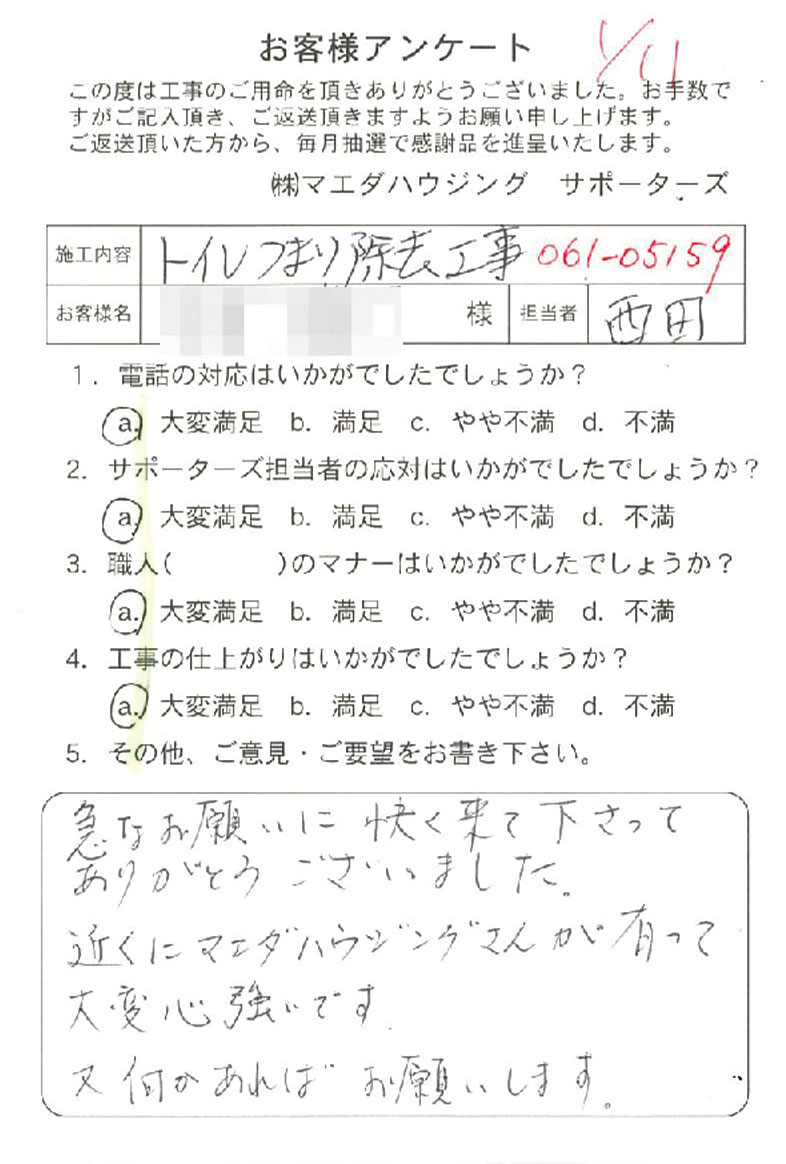 お客様アンケート
この度は工事のご用命を頂きありがとうございました。お手数で
すがご記入頂き、ご返送頂きますようお願い申し上げます。
ご返送頂いた方から、毎月抽選で感謝品を進呈いたします。
㈱マエダハウジング サポーターズ
施工内容 トイレつまり除去工事 061-05159
お客様名 様 担当者 西田
1. 電話の対応はいかがでしたでしょうか？
a. 大変満足 b. 満足 c. やや不満 d. 不満
2. サポーターズ担当者の応対はいかがでしたでしょうか？
a. 大変満足 b. 満足 c. やや不満 d. 不満
3. 職人( )のマナーはいかがでしたでしょうか？
a. 大変満足 b. 満足 c. やや不満 d. 不満
4. 工事の仕上がりはいかがでしたでしょうか？
a. 大変満足 b. 満足 c. やや不満 d. 不満
5. その他、ご意見・ご要望をお書き下さい。
急なお願いに快く来て下さって
ありがとうございました。
近くにマエダハウジングさんが有って
大変心強いです。
又何かあればお願いします。